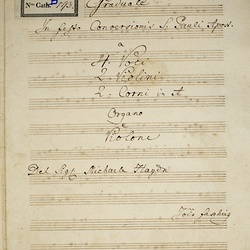 Graduale
Nro Cath. 143.
In festo Conversionis S. Pauli Apos.
a
4. Voci
2. Violini
2. Corni in A
Organo
e
Violone
Del Sigr. Michaele Haydn